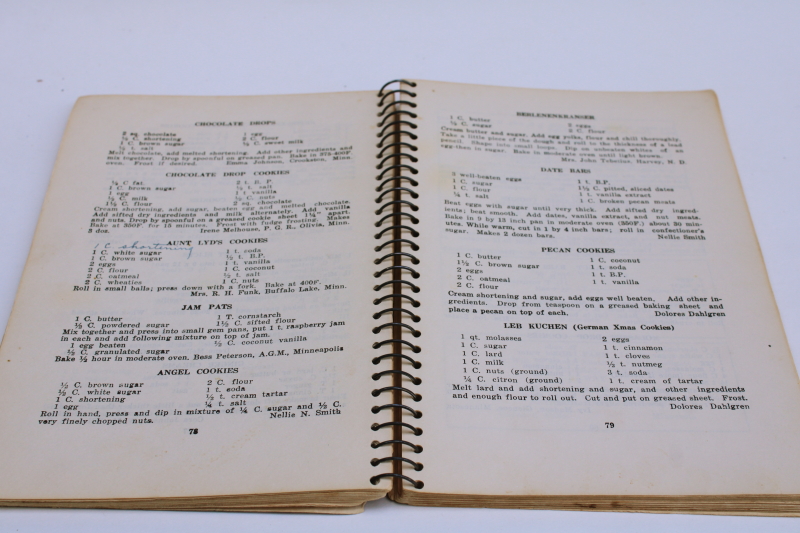 CHOCOLATE DROPS
2 sq. chocolate 1 egg
½ C. shortening 2 C. flour
1 C. brown sugar ¾ C. sweet milk
½ t. salt
Melt chocolate, add melted shortening. Add other ingredients and
mix together. Drop by spoonful on greased pan. Bake in 375-400F
oven. Frost if desired. Emma Johnson, Crookston, Minn.
CHOCOLATE DROP COOKIES
¼ C fat 2 t. B. P.
1 C. brown sugar ½ t. salt
1 egg 1 t. vanilla
½ C. milk ½ C. nuts
1½ C. flour 2 sq. chocolate
Cream shortening, add sugar, beaten egg and melted chocolate.
Add sifted dry ingredients and milk alternately. Add vanilla
and nuts. Drop by spoonful on a greased cookie sheet 1½" apart.
Bake at 350F. for 15 minutes. Frost with fudge frosting. Makes
5 doz. Irene Melhouse, P. G. R., Olivia, Minn.
1 C shortening
AUNT LYD'S COOKIES
1 C. white sugar 1 t. soda
1 C. brown sugar ½ t. B.P.
2 eggs 1 t. vanilla
2 C. flour 1 C. coconut
2 C. oatmeal ½ t. salt
2 C. wheaties 1 C. nuts
Roll in small balls; press down with a fork. Bake at 400F.
Mrs. R. H. Funk, Buffalo Lake, Minn.
JAM PATS
1 C. butter 1 T. cornstarch
½ C. powdered sugar 1½ C. sifted flour
Mix together and press into small gem pans, put 1 t. raspberry jam
in each and add following mixture on top of jam.
1 egg beaten ½ C. coconut vanilla
½ C. granulated sugar
Bake ½ hour in moderate oven. Bess Peterson, A.G.M., Minneapolis
ANGEL COOKIES
½ C. brown sugar 2 C. flour
½ C. white sugar 1 t. soda
1 C. shortening ½ t. cream tartar
1 egg ¼ t. salt
Roll in hand, press and dip in mixture of ¼ C. sugar and ½ C.
very finely chopped nuts. Nellie N. Smith
78
BERLENEKRANSER
1 C. butter 2 eggs
¾ C. sugar 2 C. flour
Cream butter and sugar. Add egg yolks, flour and chill thoroughly.
Take a little piece of the dough and roll to the thickness of a lead
pencil. Shape into small loops. Dip on unbeaten whites of an
egg-then in sugar. Bake in moderate oven until light brown.
Mrs. John Harvey, N. D.
DATE BARS
3 well-beaten eggs 1 t. B.P.
1 C. sugar 1½ C. pitted, sliced dates
1 C. flour 1 t. vanilla extract
¼ t. salt 1 C. broken pecan meats
Beat eggs with sugar until very thick. Add sifted dry ingred-
ients; beat smooth. Add dates, vanilla extract, and nut meats.
Bake in 9 by 13 inch pan in moderate oven (350F.) about 30 min-
utes. While warm, cut in 1 by 4 inch bars; roll in confectioner's
sugar. Makes 2 dozen bars. Nellie Smith
PECAN COOKIES
1 C. butter 1 C. coconut
1½ C. brown sugar 1 t. soda
2 eggs 1 t. B.P.
2 C. oatmeal 1 t. vanilla
2 C. flour
Cream shortening and sugar, add eggs well beaten. Add other in-
gredients. Drop from teaspoon on a greased baking sheet and
place a pecan on top of each. Dolores Dahlgren
LEB KUCHEN (German Xmas Cookies)
1 qt. molasses 2 eggs
1 C. sugar 1 t. cinnamon
1 C. lard 1 t. cloves
1 C. milk ½ t. nutmeg
1 C. nuts (ground) 3 t. soda
¼ C. citron (ground) 1 t. cream of tartar
Melt lard and add shortening and sugar, and other ingredients
and enough flour to roll out. Cut and put on greased sheet. Frost.
Dolores Dahlgren
79